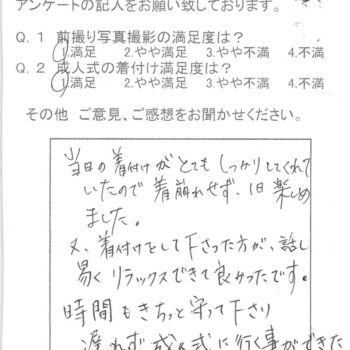 アンケートの記入をお願い致しております。
Q.1 前撮り写真撮影の満足度は?
1.満足 2.やや満足 3.やや不満 4.不満
Q.2 成人式の着付け満足度は?
1.満足 2.やや満足 3.やや不満 4.不満
その他 ご意見、ご感想をお聞かせください。
当日の着付けがとてもしっかりしてくれて
いたので着崩れせず、1日楽しめ
ました。
又、着付けをして下さった方が、話し
易くリラックスできて良かったです。
時間もきちっと守って下さり
遅れず成人式に行く事ができた